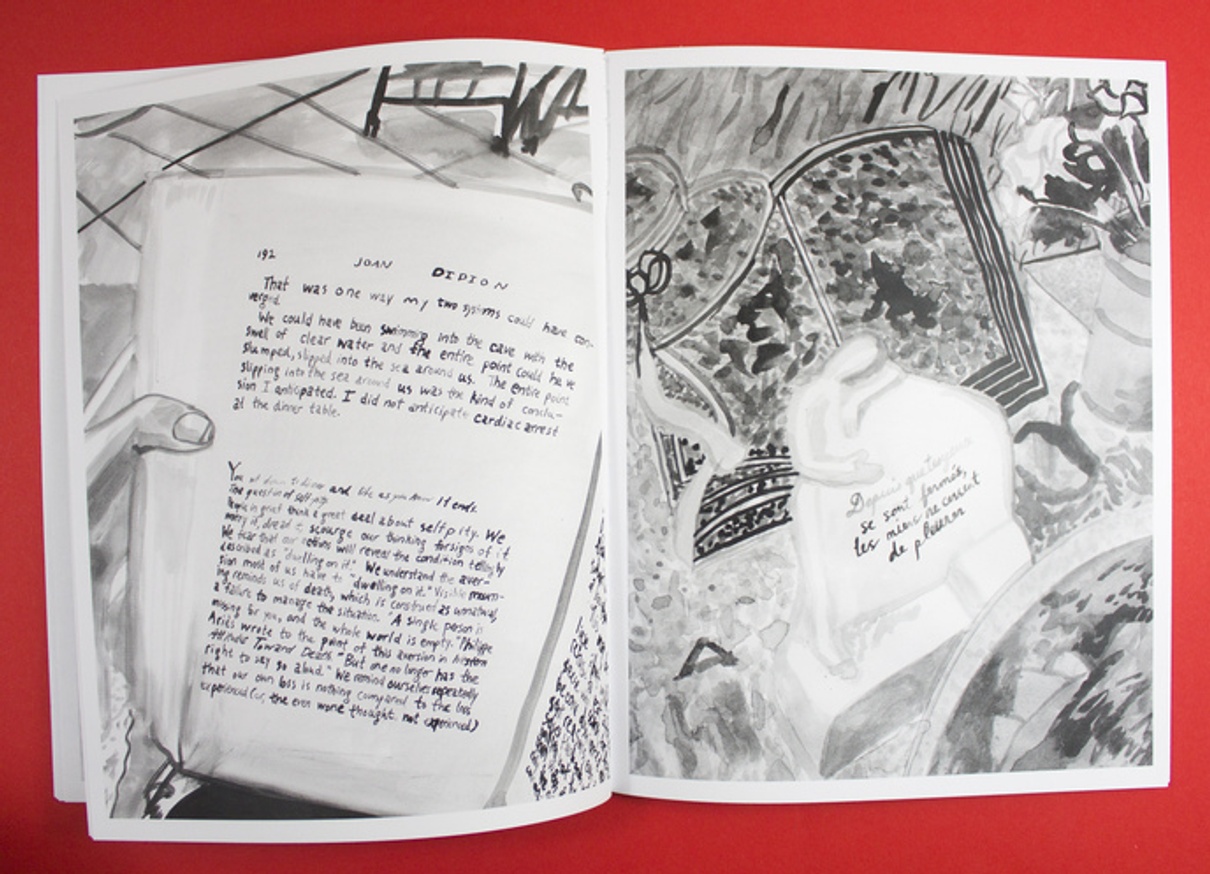 192 JOAN DIDION
That was one way my two systems could have con-
verged.
We could have been swimming into the cave with the
swell of clear water and the entire point could have
slumped, slipped into the sea around us. The entire point
slipping into the sea around us was the kind of conclu-
sion I anticipated. I did not anticipate cardiac arrest
at the dinner table.
You sit down to dinner and life as you know it ends.
The question of self-pity.
People in grief think a great deal about self pity. We
worry it, dread it, scourge our thinking for signs of it
We fear that our actions will reveal the condition tellingly
described as "dwelling on it". We understand the aver-
sion most of us have to "dwelling on it." Visible mourn-
ing reminds us of death, which is construed as unnatural,
a failure to manage the situation. "A single person is
missing for you, and the whole world is empty." Philippe
Ariès wrote to the point of this aversion in Western
Attitudes Toward Death. "But one no longer has the
right to say so aloud." We remind ourselves repeatedly
that our own loss is nothing compared to the loss
experienced (or, the even worse thought, not experienced)
Depuis que tes yeux
se sont fermés,
les miens ne cessent
de pleurer